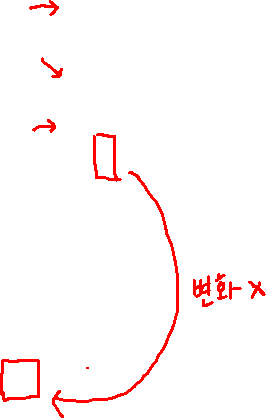 변화 x